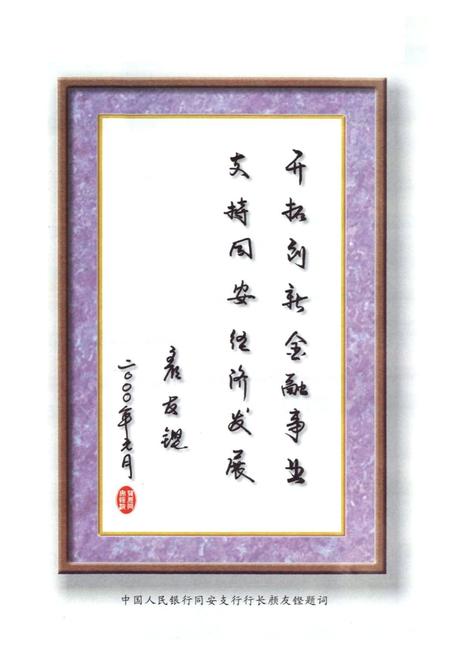 开拓创新金融事业
支持同安经济发展
颜友铿
二〇〇〇年元月
中国人民银行同安支行行长颜友铿题词